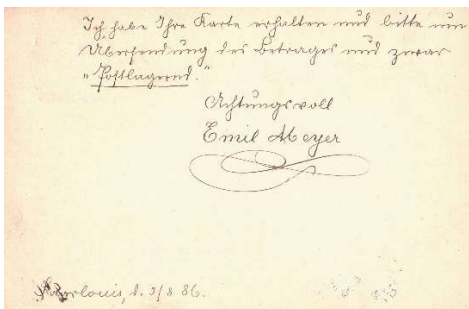 Ich habe Ihre Karte erhalten und bitte um
Übersendung des Betrages und zwar
"Postlagernd."
Achtungsvoll
Emil Meyer
Saarlouis, d. 3/8 86.